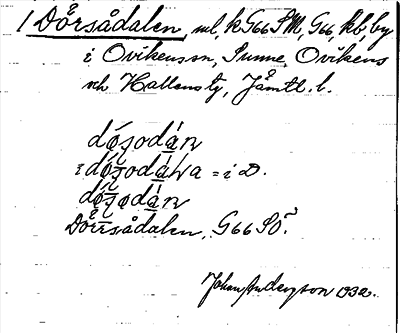 1 Dörsådalen, ml, k G66 SM, G66, kb, by
i Ovikens sn, Sunne, Ovikens
och Hallens tg, Jämtl. l.
dósodán
i dósodálva = i D.
dósodán
Dörrsådalen, G66 SO.
Johan Anderson 1932.